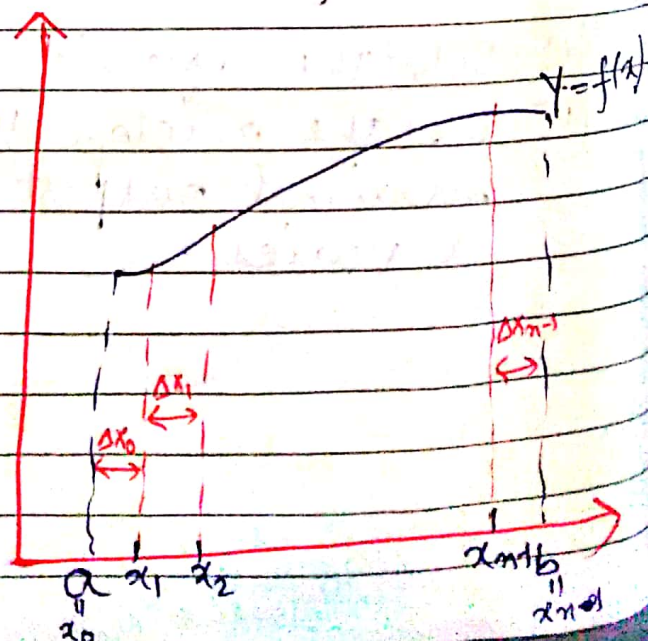 y = f(x)
Δx_{n-1}
Δx₁
Δx₀
a x₁ x₂ x_{n-1} b
" "
x₀